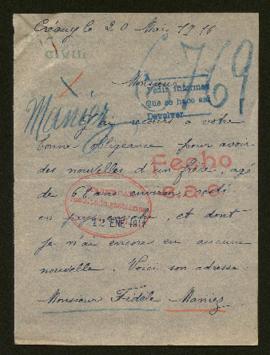 20 1916
CIVIL
6769
Monsieur
Pedir informes
que se hace en
Devolver
Maniez
J'ai recours à votre
bonne obligeance pour avoir
des nouvelles d'un frère, agé
Fecho
de ans environ, resté
en pays et dont
12 ENE 1917
je n'ai encore eu aucune
nouvelle. Voici son adresse
Monsieur Fidèle Maniez